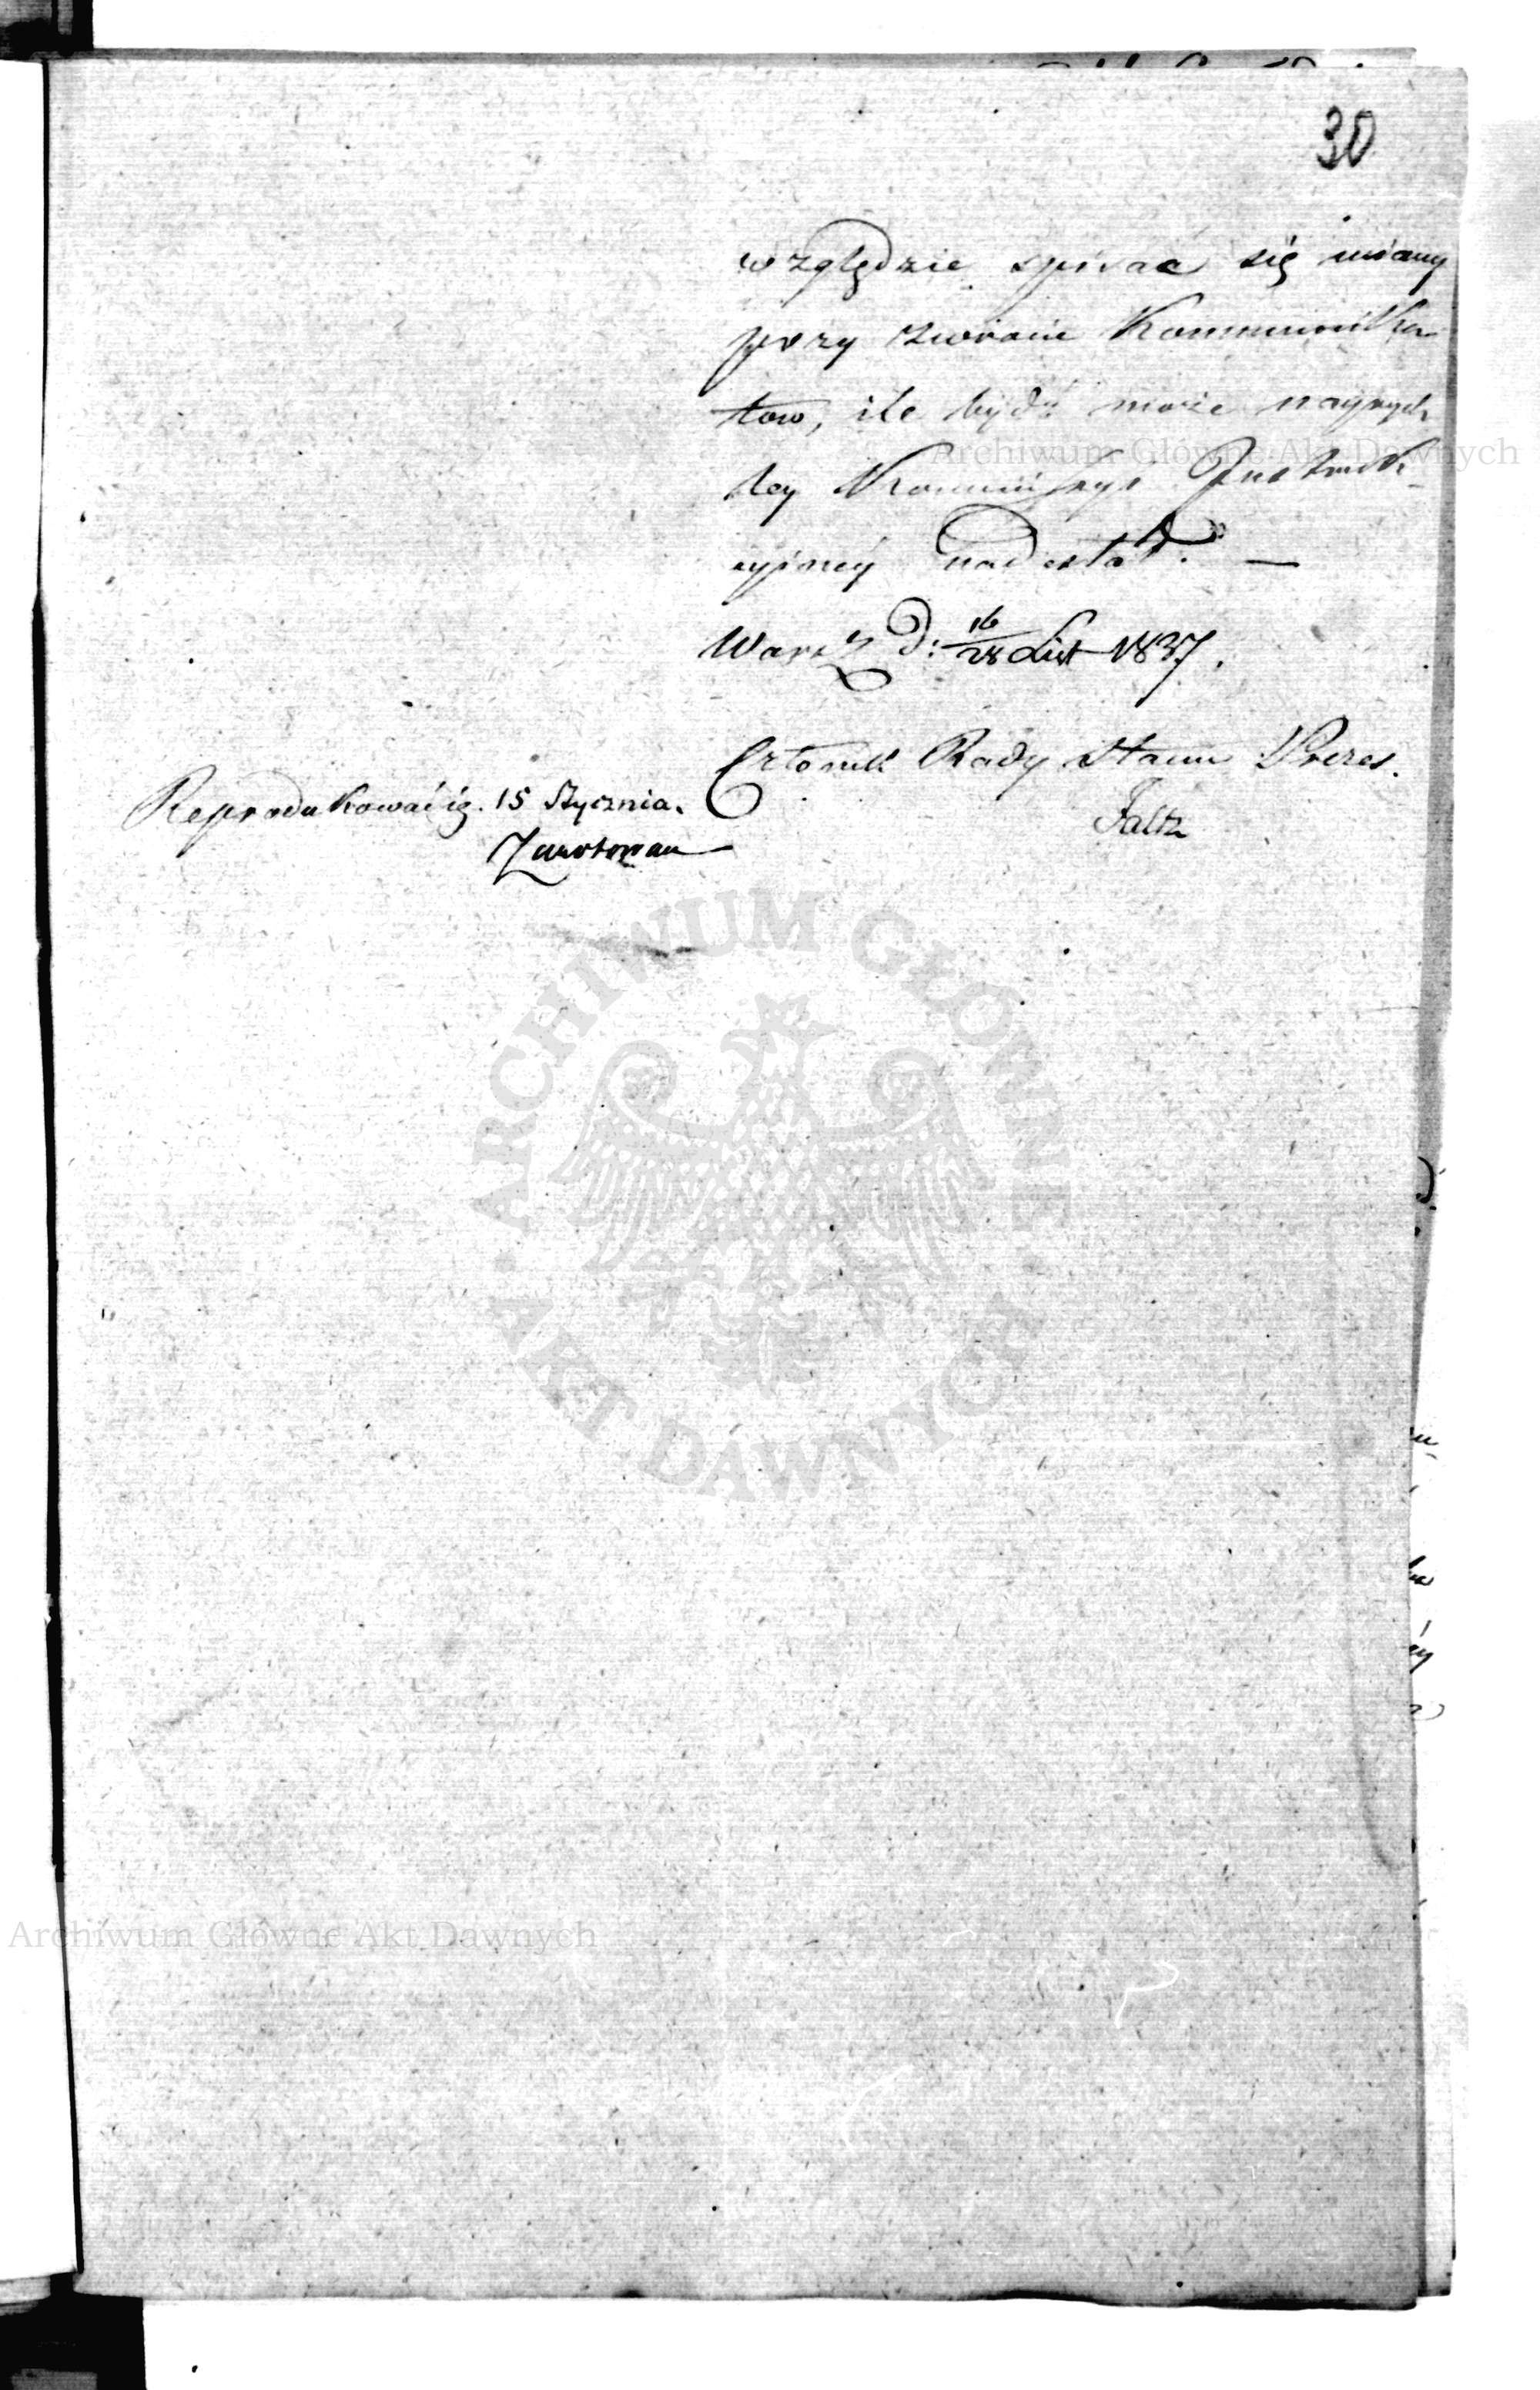 30
względzie spisać się miany
przy zwrocie Kommunika
tow, ile bydź może nayrych
ley Kommissyi Instruk-
cyjnéy nadesłał. —
Warsz d: 16/28 List 1837.
Członek Rady Stanu Prezes.
Faltz
Reprodukować ig. 15 Stycznia.
Archiwum Główne Akt Dawnych
ARCHIWUM GŁÓWNE
AKT DAWNYCH
Archiwum Główne Akt Dawnych